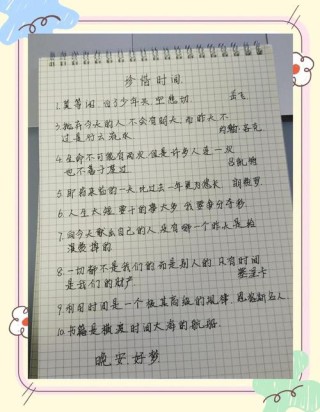 珍惜时间
1.莫等闲,白了少年头,空悲切. 岳飞
3.抛弃今天的人,不会有明天,而昨天不
过是行云流水. 约翰·洛克
4.生命不可能有两次,但是许多人连一次
也不善于度过. 吕凯特
5.即将来临的一天,比过去一年更为悠长.
6.人生太短,要干的事太多,我要争分夺秒.
7.向今天献出自己的人,没有哪一个昨天是给
浪费掉的
8.一切都不是我们的而是别人的,只有时间
是我们的财产 塞涅卡
9.利用时间是一个极其高级的规律. 恩格斯
10.书籍是横渡时间大海的航船.
晚安,好梦